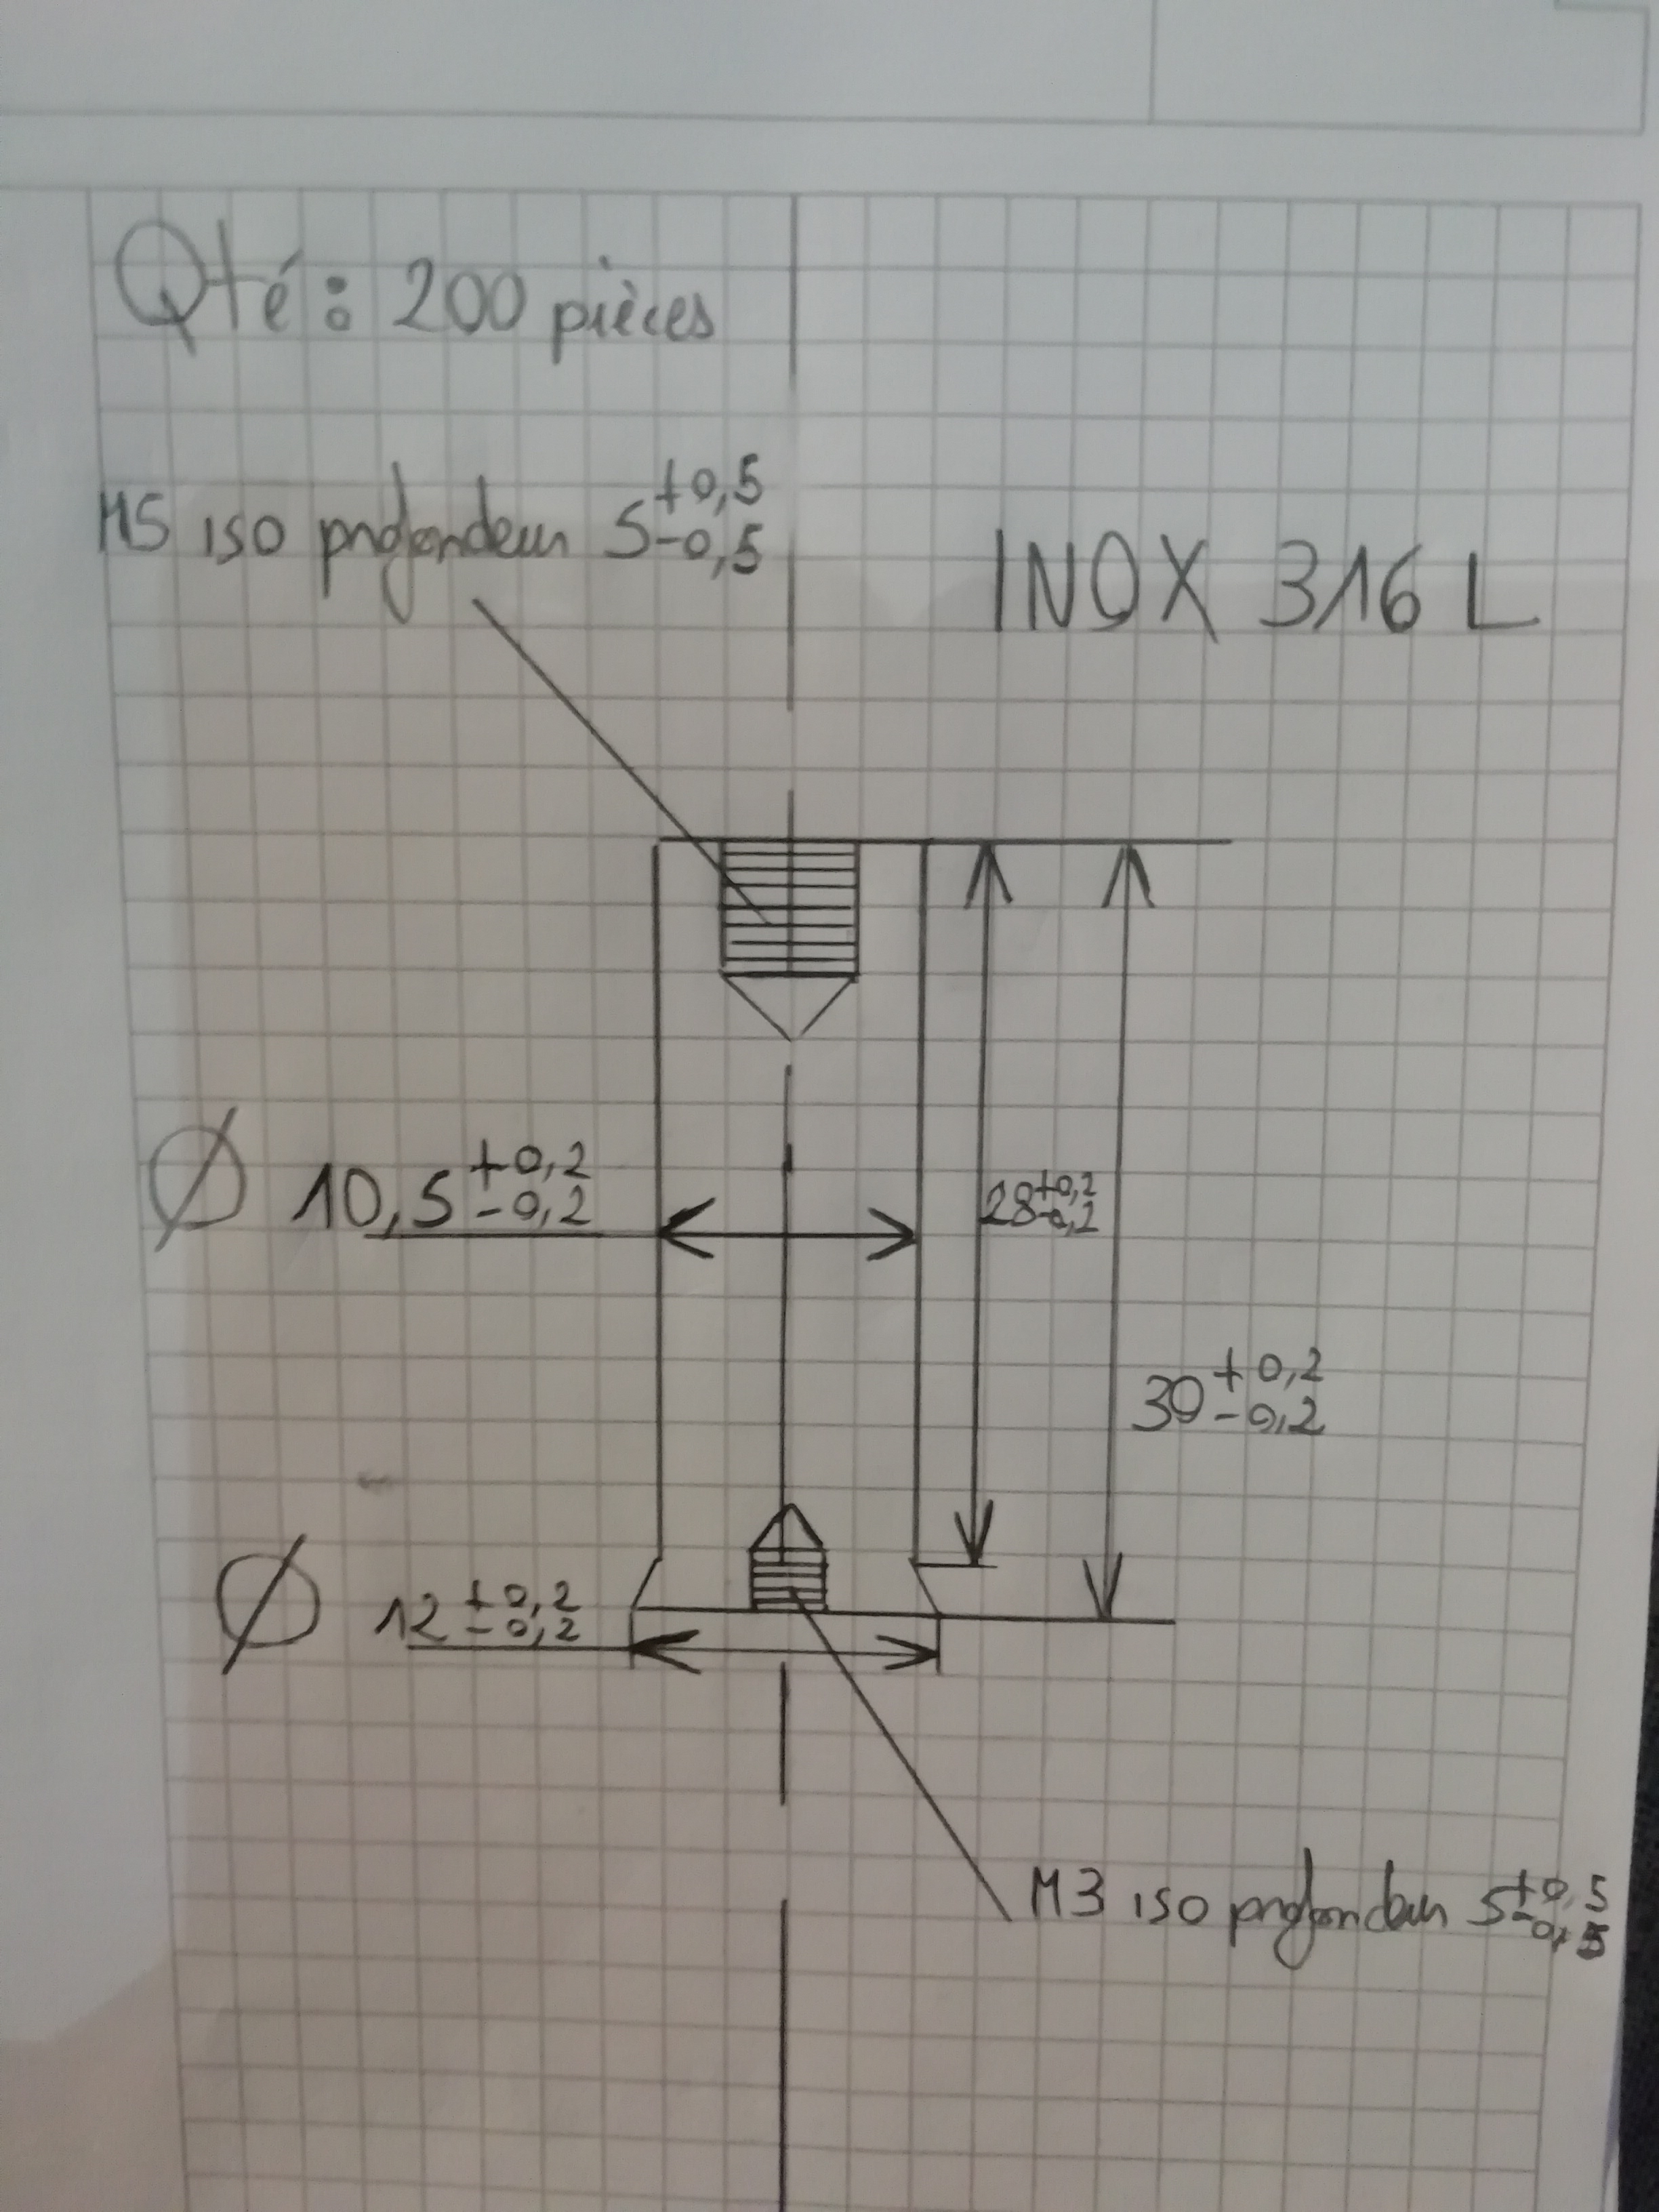 Qté : 200 pièces
M5 iso profondeur 5 +0,5 -0,5
INOX 316 L
Ø 10,5 +0,2 -0,2
28 +0,2 -0,2
30 +0,2 -0,2
Ø 12 +0,2 -0,2
M3 iso profondeur 5 +0,5 -0,5